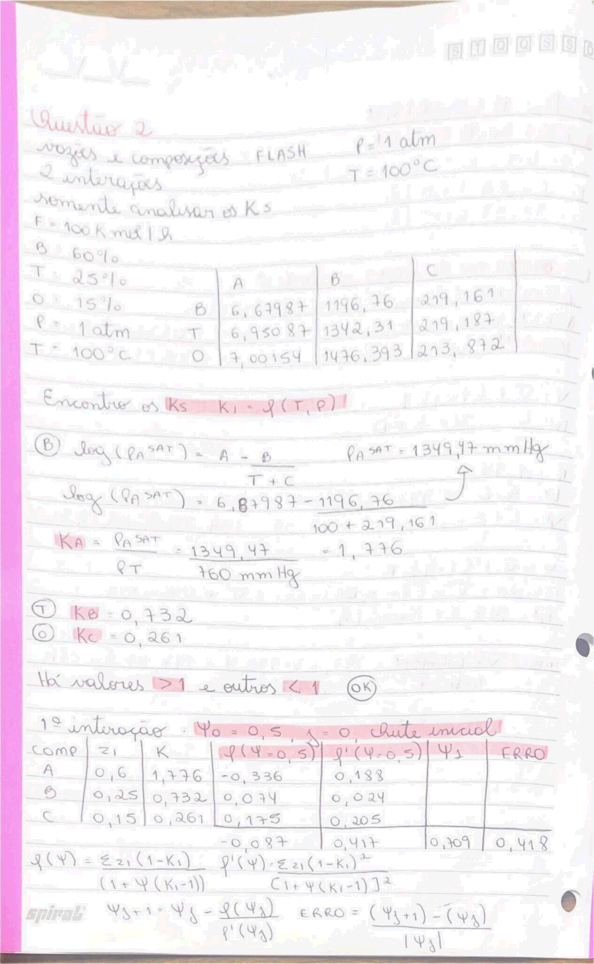 S T Q Q S S D
Questão 2
vazões e composições FLASH P = 1 atm
2 interações T = 100°C
somente analisar os Ks
F = 100 Kmol/h
B = 60%
T = 25%
O = 15%
P = 1 atm
T = 100°C
A B C
B 6,67987 1196,76 219,161
T 6,95087 1342,31 219,187
O 7,00154 1476,393 213,872
Encontro os Ks Ki = f(T,P)
(B) log(PA SAT) = A - B / T + C PA SAT = 1349,47 mmHg
log(PA SAT) = 6,87987 - 1196,76 / 100 + 219,161
KA = PA SAT / PT = 1349,47 / 760 mmHg = 1,776
(T) KB = 0,732
(O) KC = 0,261
Há valores >1 e outros <1 (OK)
1º interação: Ψ0 = 0,5, j = 0, chute inicial
COMP zi K f(Ψ=0,5) f'(Ψ=0,5) Ψj ERRO
A 0,6 1,776 -0,336 0,188
B 0,25 0,732 0,074 0,024
C 0,15 0,261 0,175 0,205
-0,087 0,417 0,709 0,418
f(Ψ) = Σzi(1-Ki) / (1+Ψ(Ki-1)) f'(Ψ) = Σzi(1-Ki)² / [1+Ψ(Ki-1)]²
Ψj+1 = Ψj - f(Ψj) / f'(Ψj) ERRO = (Ψj+1) - (Ψj) / |Ψj|
spiral